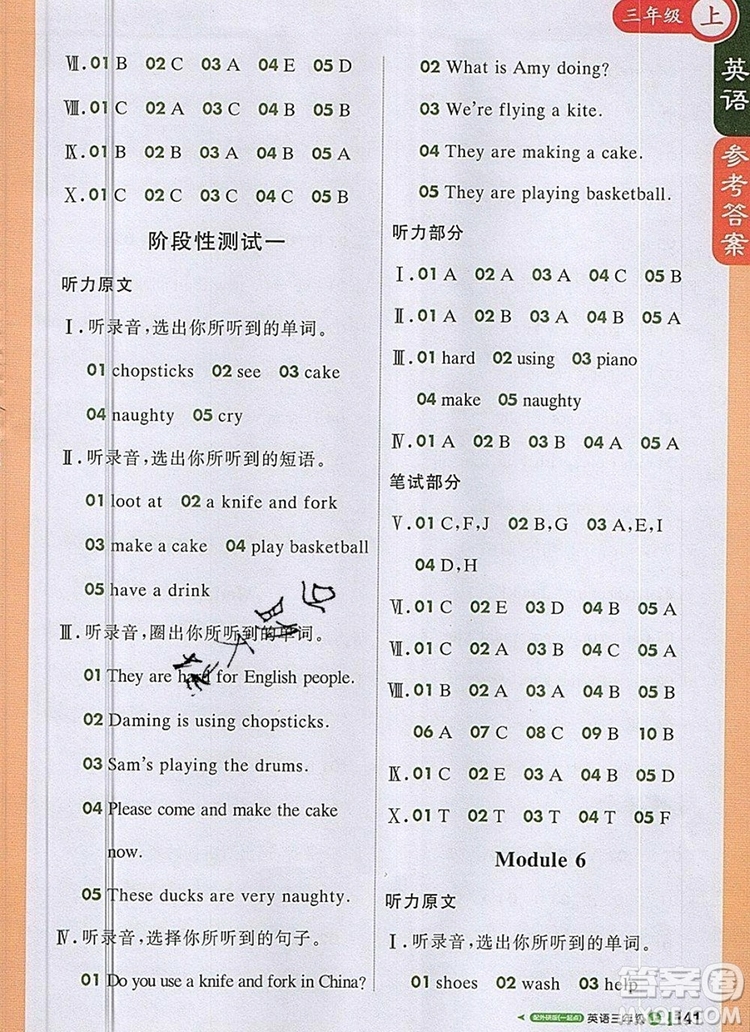 三年级 上
英语
参考答案
Ⅶ.01 B 02 C 03 A 04 E 05 D
Ⅷ.01 C 02 A 03 C 04 B 05 B
Ⅸ.01 B 02 B 03 A 04 B 05 A
Ⅹ.01 C 02 C 03 A 04 C 05 B
阶段性测试一
听力原文
Ⅰ.听录音,选出你所听到的单词。
01 chopsticks 02 see 03 cake
04 naughty 05 cry
Ⅱ.听录音,选出你所听到的短语。
01 loot at 02 a knife and fork
03 make a cake 04 play basketball
05 have a drink
Ⅲ.听录音,圈出你所听到的单词。
01 They are hard for English people.
02 Daming is using chopsticks.
03 Sam's playing the drums.
04 Please come and make the cake
now.
05 These ducks are very naughty.
Ⅳ.听录音,选择你所听到的句子。
01 Do you use a knife and fork in China?
02 What is Amy doing?
03 We're flying a kite.
04 They are making a cake.
05 They are playing basketball.
听力部分
Ⅰ.01 A 02 A 03 A 04 C 05 B
Ⅱ.01 A 02 B 03 A 04 B 05 A
Ⅲ.01 hard 02 using 03 piano
04 make 05 naughty
Ⅳ.01 A 02 B 03 B 04 A 05 A
笔试部分
Ⅴ.01 C,F,J 02 B,G 03 A,E,I
04 D,H
Ⅵ.01 C 02 E 03 D 04 B 05 A
Ⅶ.01 C 02 C 03 A 04 B 05 A
Ⅷ.01 B 02 B 03 A 04 B 05 A
06 A 07 C 08 C 09 B 10 B
Ⅸ.01 C 02 B 03 A 04 C 05 A
Ⅹ.01 T 02 T 03 T 04 T 05 F
Module 6
听力原文
Ⅰ.听录音,选出你所听到的单词。
01 shoes 02 wash 03 help
配外研版(一起点) 英语三年级 上 141
答案圈